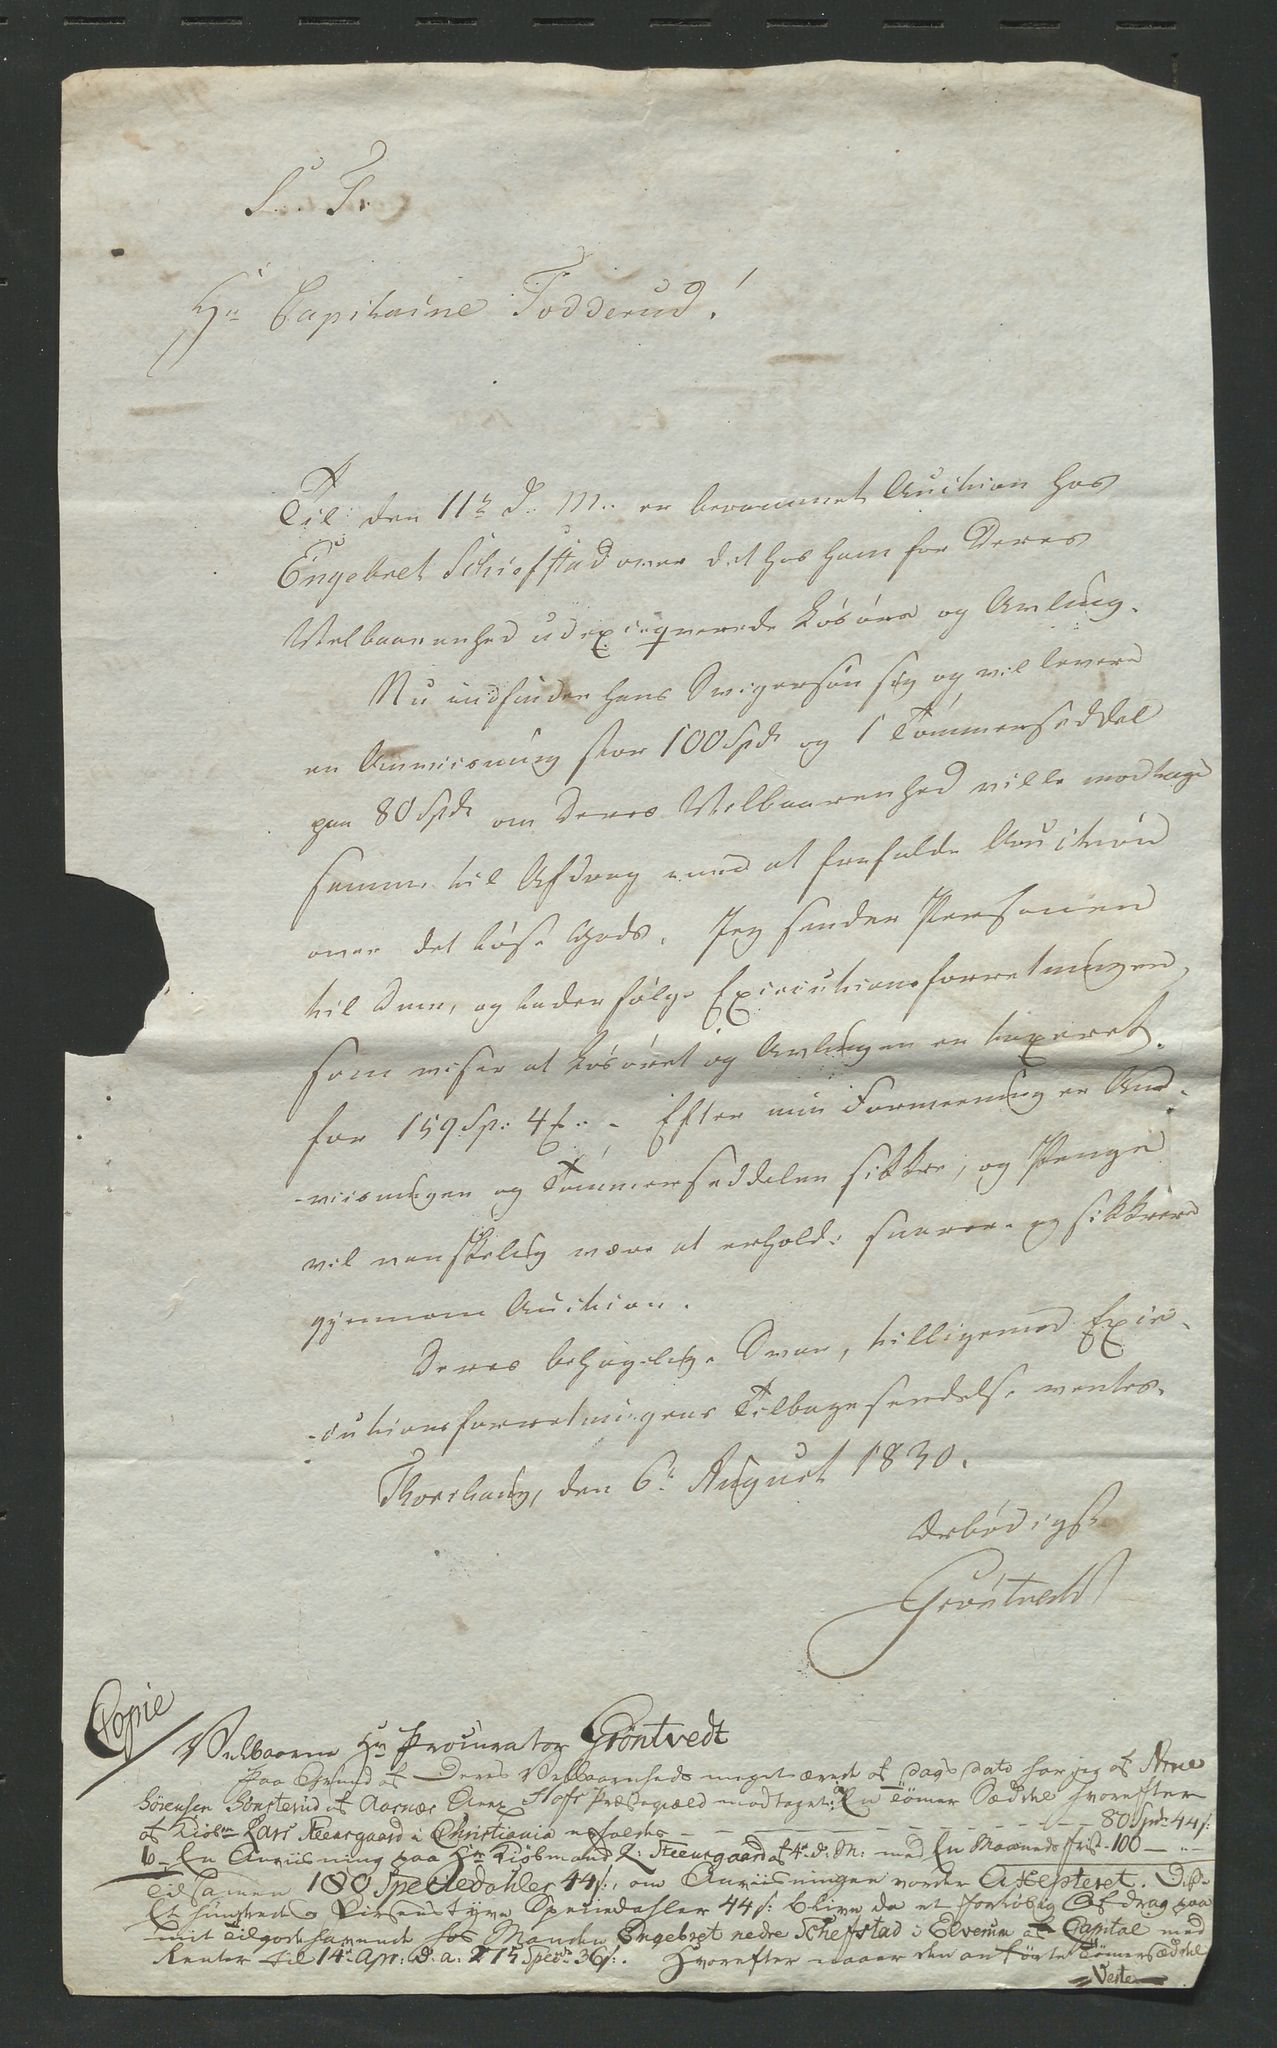 S. T.
Hr Capitaine Todderud!
Til den 11te d. M. er berammet Auction hos
Engebret Schiefstad over det hos ham for Deres
Velbaarenhed udexiqverede Løsøre og Avling.
Nu indfinder hans Svigersøn sig og vil levere
en Anviisning stor 100 Spd og 1 Tømmerseddel
paa 80 Spd om Deres Velbaarenhed ville modtage
samme til Afdrag med at frafalde Auction
over det løse Gods. Jeg sender Personen
til Dem, og lader følge Executionsforretningen,
som viser at Løsøret og Avlingen er taxeret
for 159 Sp: 4 . Efter min Formeening er An-
-viisningen og Tømmerseddelen sikkre, og Penge
vil vanskelig være at erholde snarere og sikkrere
gjennem Auction.
Deres behagelige Svar, tilligemed Exe-
-cutionsforretningens Tilbagesendelse ventes.
Thorshaug, den 6te August 1830.
Ærbødigst
Grøntvedt
Copie
Velbaarne Hr Procurator Gröntvedt
Paa Grund af Deres Velbaarenheds meget ærede af Dags Dato har jeg af Arne
Sörensen Gonsterud af Aasnæs Anex Hofs Præstegield modtaget: a En Tömer Sæddel hvorefter
af Kiöbm Lars Steensgaard i Christiania erholdes - - - 80 Spd 44 s:
b - En Anviisning paa Hr Kiöbmand L: Steensgaard af 4de d: M: med En Maaneds frist - 100 - " -
Tilsamen 180 Speciedahler 44 s:, om Anviisningen vorder Accepteret. Diße
Et hundrede Firsenstyve Speciedahler 44 s: blive da et forlöbig Afdrag paa
mit Tilgodehavende hos Manden Engebret nedre Scheffstad i Elverum af Capital med
Renter til 14de Apr: d: a: 215 Specd 36 s:. Hvorefter naar den anförte Tömersæddel
Verte